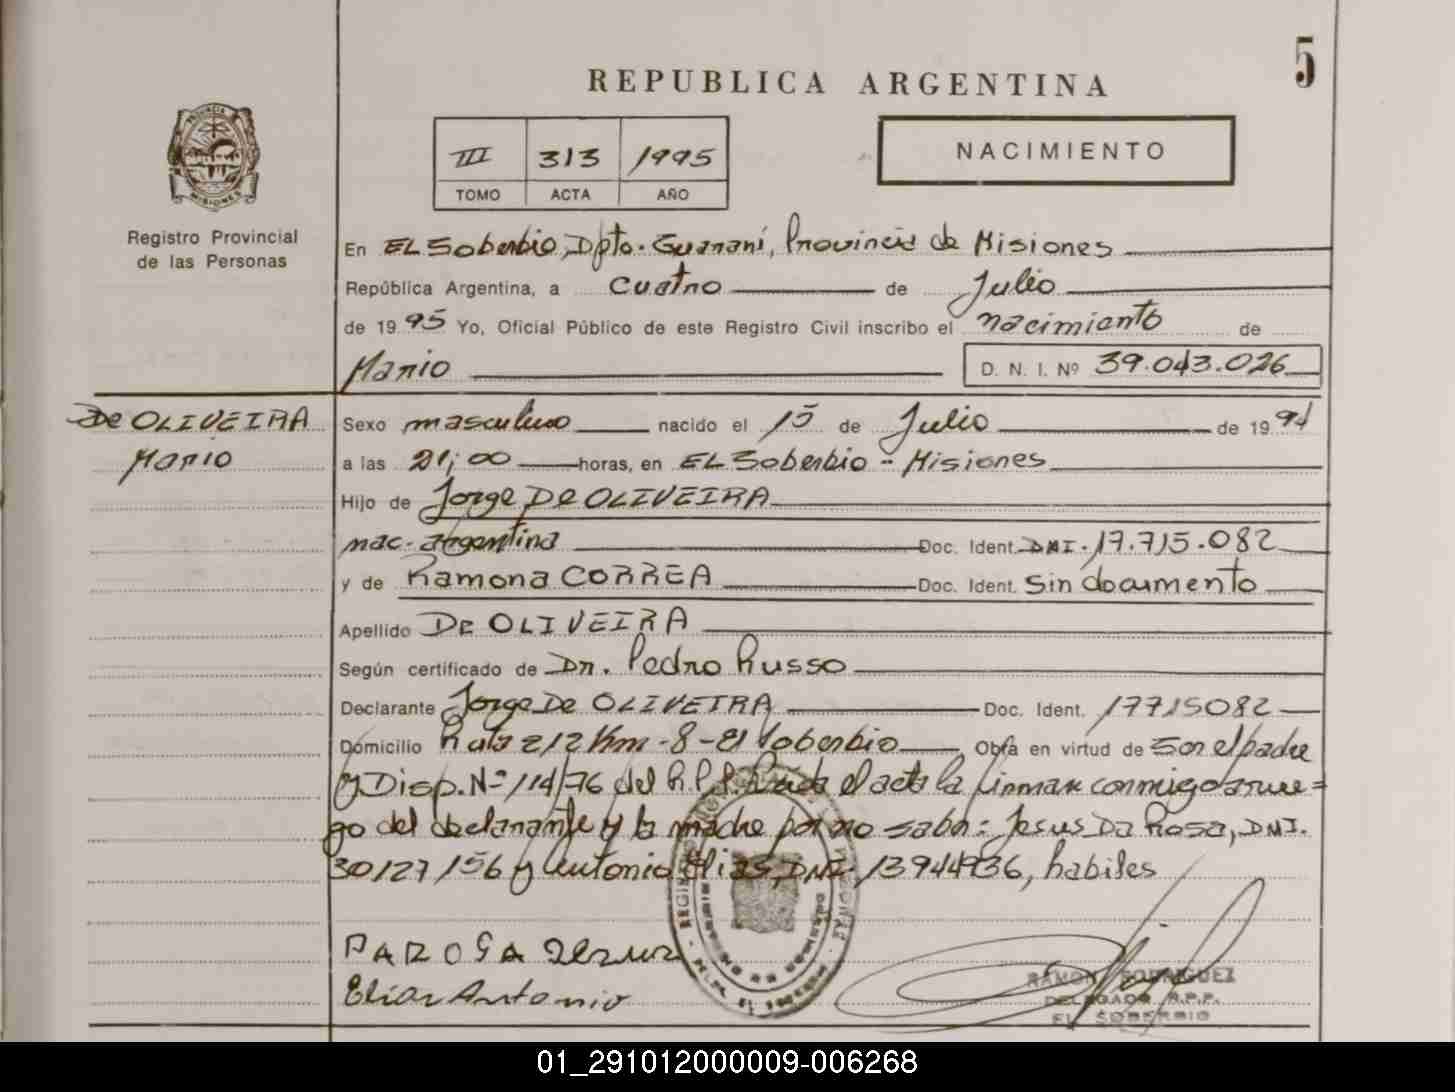 5
REPUBLICA ARGENTINA
III 313 1995
TOMO ACTA AÑO
NACIMIENTO
PROVINCIA DE
MISIONES
Registro Provincial
de las Personas
En EL Soberbio, Dpto. Guaraní, Provincia de Misiones
República Argentina, a cuatro de Julio
de 1995 Yo, Oficial Público de este Registro Civil inscribo el nacimiento de
Mario D. N. I. Nº 39.043.026
De OLIVEIRA
Mario
Sexo masculino nacido el 15 de Julio de 1994
a las 21,00 horas, en EL Soberbio - Misiones
Hijo de Jorge De OLIVEIRA
nac. argentina Doc. Ident. DNI. 17.715.082
y de Ramona CORREA Doc. Ident. Sin documento
Apellido De OLIVEIRA
Según certificado de Dr. Pedro Russo
Declarante Jorge De OLIVEIRA Doc. Ident. 17715082
Domicilio Ruta 212 Km-8-El Soberbio Obra en virtud de Ser el padre
y Disp. Nº 114/76 del R.P.P. Leida el acta la firman conmigo a rue=
go del declarante y la madre por no saber: Jesus Da Rosa, DNI.
30127156 y Antonio Elias, DNI. 13944936, habiles
DAROSA Jesus
Elias Antonio
RAMON RODRIGUEZ
DELEGADO R.P.P.
EL SOBERBIO
01_291012000009-006268